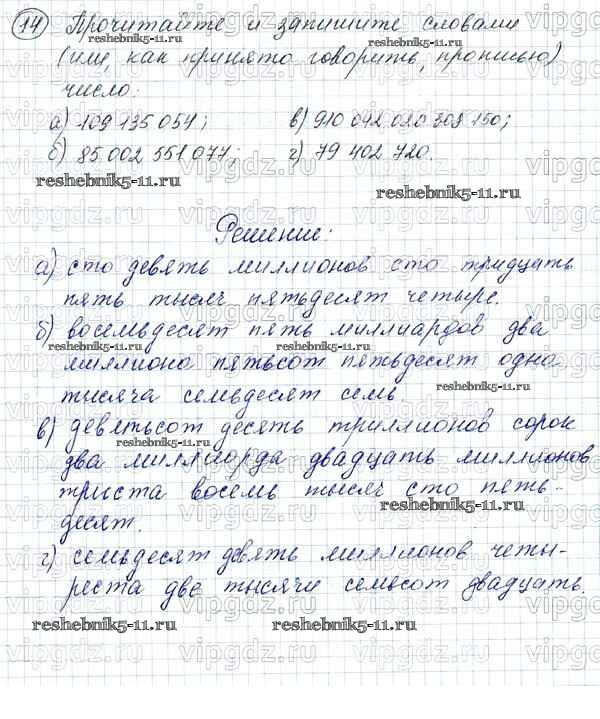 14) Прочитайте и запишите словами
reshebnik5-11.ru reshebnik5-11.ru
(или, как принято говорить, прописью)
число:
а) 109 135 054; в) 910 042 020 308 150;
б) 85 002 551 077; г) 79 402 720.
reshebnik5-11.ru reshebnik5-11.ru
Решение:
а) сто девять миллионов сто тридцать
пять тысяч пятьдесят четыре.
б) восемьдесят пять миллиардов два
reshebnik5-11.ru reshebnik5-11.ru
миллиона пятьсот пятьдесят одна
тысяча семьдесят семь
reshebnik5-11.ru
в) девятьсот десять триллионов сорок
reshebnik5-11.ru
два миллиарда двадцать миллионов
триста восемь тысяч сто пять-
десят.
reshebnik5-11.ru
г) семьдесят девять миллионов четы-
реста две тысячи семьсот двадцать.
reshebnik5-11.ru reshebnik5-11.ru
vipgdz.ru vipgdz.ru vipgdz.ru